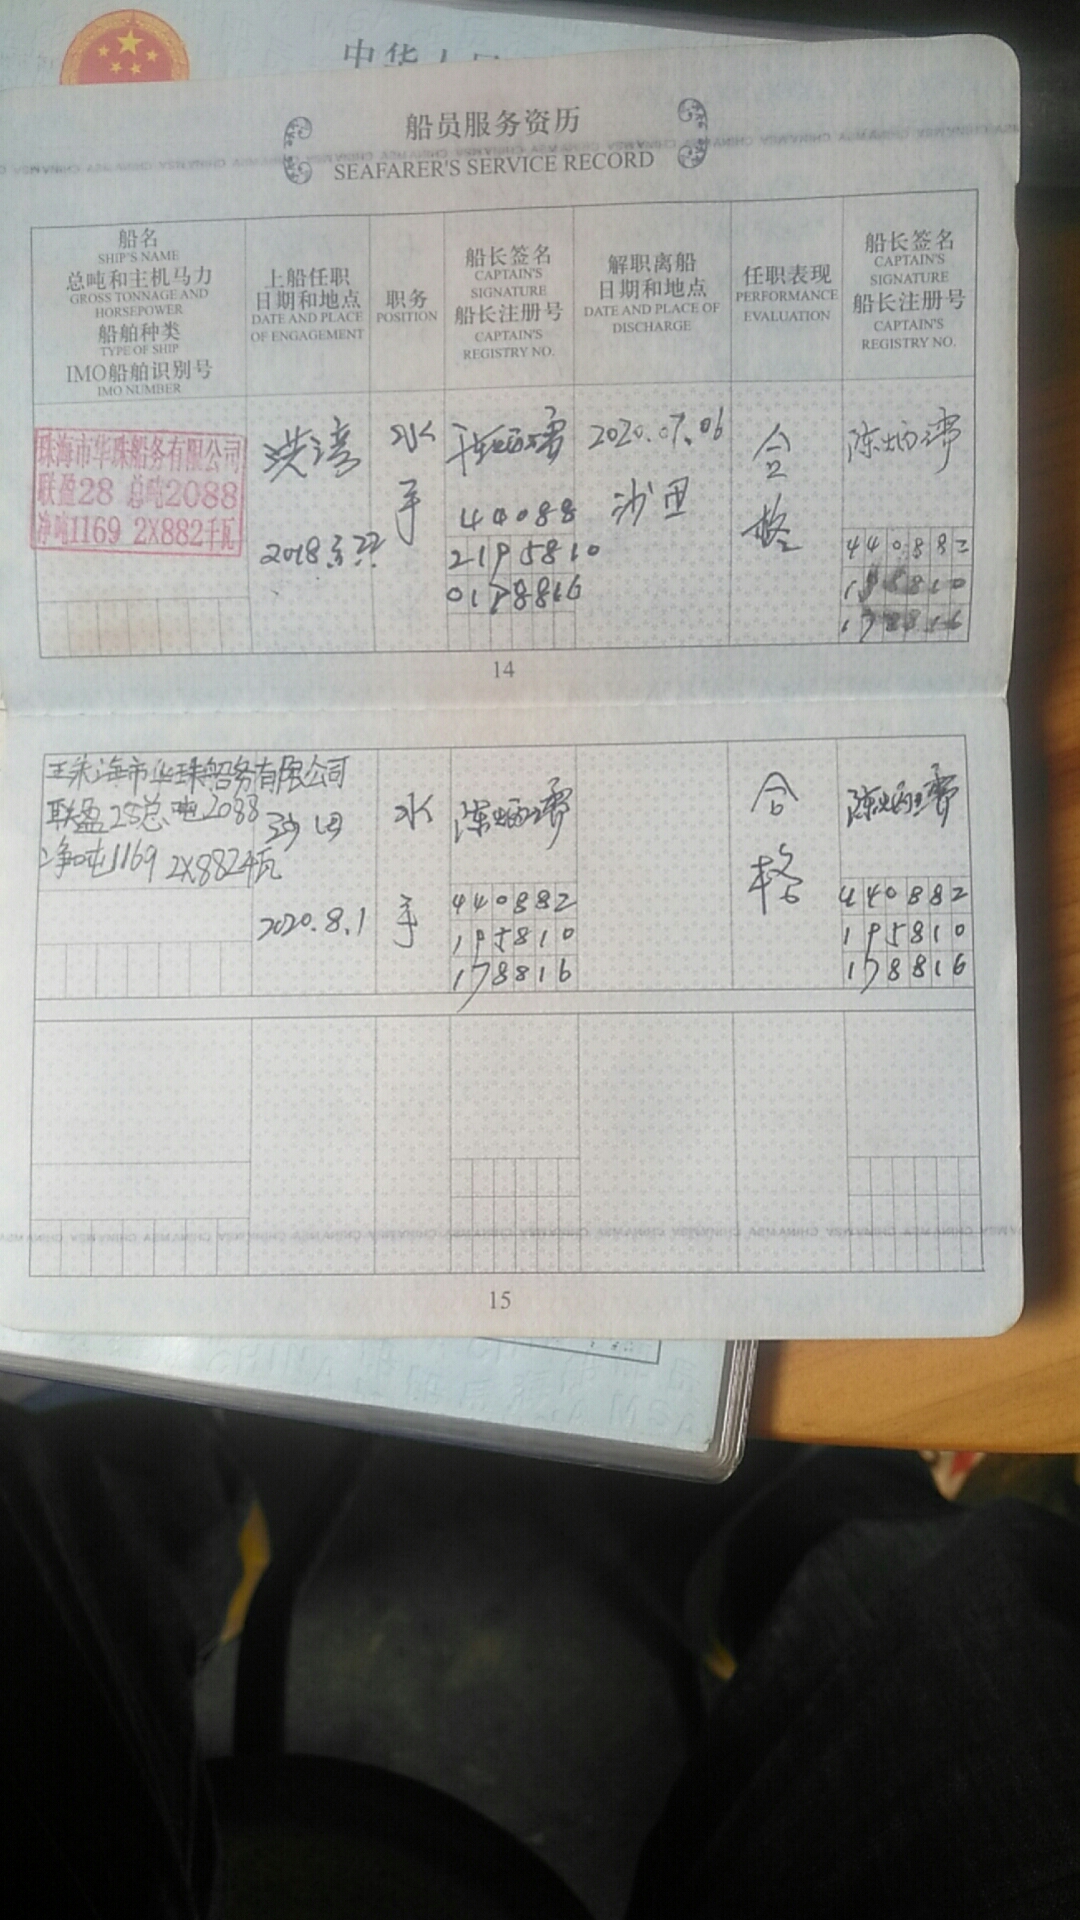 中华人民
船员服务资历
SEAFARER'S SERVICE RECORD
船名
SHIP'S NAME
总吨和主机马力
GROSS TONNAGE AND
HORSEPOWER
船舶种类
TYPE OF SHIP
IMO船舶识别号
IMO NUMBER
上船任职
日期和地点
DATE AND PLACE
OF ENGAGEMENT
职务
POSITION
船长签名
CAPTAIN'S
SIGNATURE
船长注册号
CAPTAIN'S
REGISTRY NO.
解职离船
日期和地点
DATE AND PLACE OF
DISCHARGE
任职表现
PERFORMANCE
EVALUATION
船长签名
CAPTAIN'S
SIGNATURE
船长注册号
CAPTAIN'S
REGISTRY NO.
珠海市华珠船务有限公司
联盈28 总吨2088
净吨1169 2X882千瓦
洪湾
水
手
44088
2195810
0178816
2020.07.06
沙田
合
格
陈炳
440882
178816
14
珠海市华珠船务有限公司
联盈28总吨2088
净吨1169 2X882千瓦
沙田
2020.8.1
水
手
陈炳
440882
195810
178816
合
格
陈炳
440882
195810
178816
15